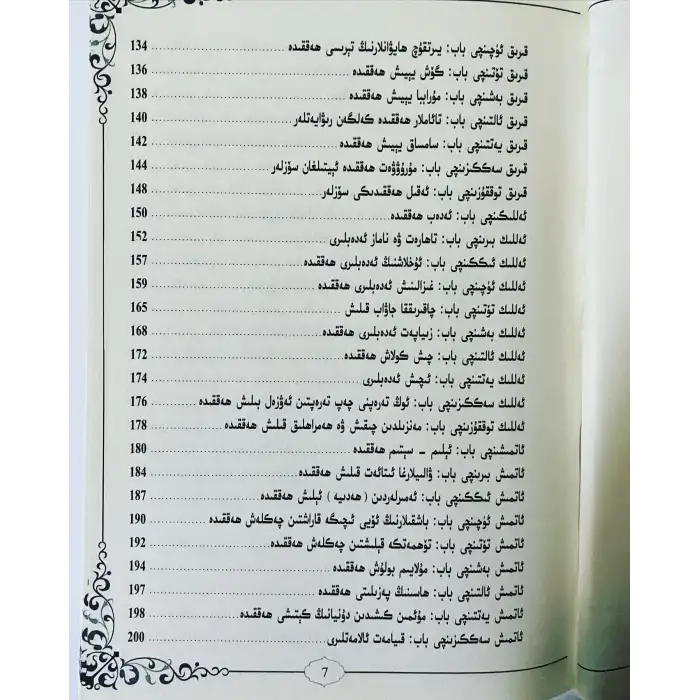 قىرىق ئۈچىنچى باب: يىرتقۇچ ھايۋانلارنىڭ تېرىسى ھەققىدە 134
قىرىق تۆتىنچى باب: گۆش يېيىش ھەققىدە 136
قىرىق بەشىنچى باب: مۇرابا يېيىش ھەققىدە 138
قىرىق ئالتىنچى باب: تائاملار ھەققىدە كەلگەن رىۋايەتلەر 140
قىرىق يەتتىنچى باب: سامساق يېيىش ھەققىدە 142
قىرىق سەككىزىنچى باب: مۇرۇۋۋەت ھەققىدە ئېيتىلغان سۆزلەر 144
قىرىق توققۇزىنچى باب: ئەقىل ھەققىدىكى سۆزلەر 148
ئەللىكىنچى باب: ئەدەب ھەققىدە 150
ئەللىك بىرىنچى باب: تاھارەت ۋە ناماز ئەدەبلىرى 152
ئەللىك ئىككىنچى باب: ئۇخلاشنىڭ ئەدەبلىرى ھەققىدە 157
ئەللىك ئۈچىنچى باب: غىزالىنىش ئەدەبلىرى ھەققىدە 159
ئەللىك تۆتىنچى باب: چاقىرىققا جاۋاب قىلىش 165
ئەللىك بەشىنچى باب: زىياپەت ئەدەبلىرى ھەققىدە 168
ئەللىك ئالتىنچى باب: چىش كولاش ھەققىدە 172
ئەللىك يەتتىنچى باب: ئىچىش ئەدەبلىرى 174
ئەللىك سەككىزىنچى باب: ئوڭ تەرەپنى چەپ تەرەپتىن ئەۋزەل بىلىش ھەققىدە 176
ئەللىك توققۇزىنچى باب: مەنزىلدىن چىقىش ۋە ھەمراھلىق قىلىش ھەققىدە 178
ئاتمىشىنچى باب: ئېلىم – سېتىم ھەققىدە 180
ئاتمىش بىرىنچى باب: ۋالىيلارغا ئىتائەت قىلىش ھەققىدە 184
ئاتمىش ئىككىنچى باب: ئەمىرلەردىن ( ھەدىيە ) ئېلىش ھەققىدە 187
ئاتمىش ئۈچىنچى باب: باشقىلارنىڭ ئۆيى ئىچىگە قاراشتىن چەكلەش ھەققىدە 190
ئاتمىش تۆتىنچى باب: تۆھمەتكە قېلىشتىن چەكلەش ھەققىدە 192
ئاتمىش بەشىنچى باب: مۇلايىم بولۇش ھەققىدە 194
ئاتمىش ئالتىنچى باب: ھاسىنىڭ پەزىلىتى ھەققىدە 197
ئاتمىش يەتتىنچى باب: مۇئمىن كىشىدىن دۇنيانىڭ كېتىشى ھەققىدە 198
ئاتمىش سەككىزىنچى باب: قىيامەت ئالامەتلىرى 200
7